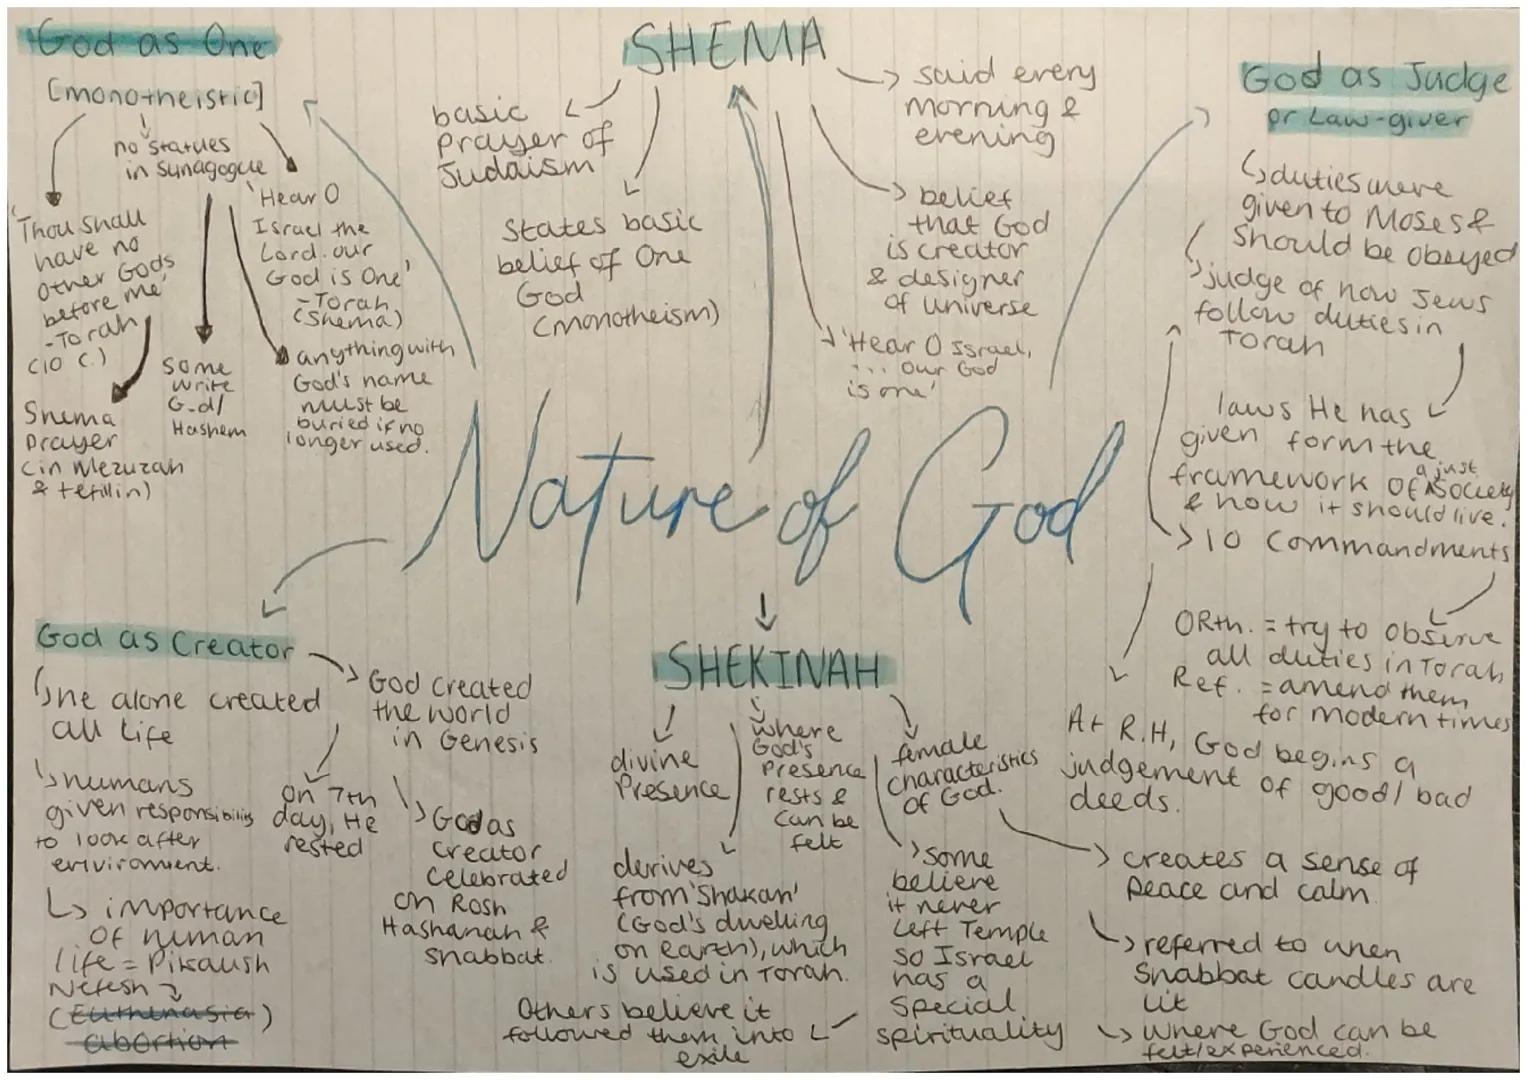 God as One
[monotheistic]
no statues
in synagogue
'Thou shall
have no
other Gods
before me'
- Torah
(10 C.)
Shema
prayer
(in Mezuzah
& tefillin)
Some
write
G-d/
Hashem
'Hear O
Israel the
Lord our
God is One'
- Torah
(Shema)
anything with
God's name
must be
buried if no
longer used.
SHEMA
basic
prayer of
Judaism
States basic
belief of One
God
(monotheism)
said every
morning &
evening
belief
that God
is creator
& designer
of universe
'Hear O Israel,
... our God
is one'
God as Judge
or Law-giver
duties were
given to Moses &
should be obeyed
judge of how Jews
follow duties in
Torah
laws He has
given form the
framework of a just society
& how it should live.
10 Commandments
ORth. = try to observe
all duties in Torah
Ref. = amend them
for modern times
At R.H, God begins a
judgement of good/bad
deeds.
Nature of God
God as Creator
he alone created
all life
humans
given responsibility
to look after
enviroment.
importance
of human
life = Pikaush
Nefesh
(Euthenasia)
abortion
God created
the world
in Genesis
on 7th
day, He
rested
God as
creator
celebrated
on Rosh
Hashanah &
shabbat.
SHEKINAH
divine
Presence
where
God's
presence
rests &
can be
felt
female
characteristics
of God.
derives
from 'Shakan'
(God's dwelling
on earth), which
is used in Torah.
some
believe
it never
left Temple
so Israel
has a
special
spirituality
Others believe it
followed them into
exile
creates a sense of
peace and calm
referred to when
Shabbat candles are
lit
where God can be
felt/experienced.